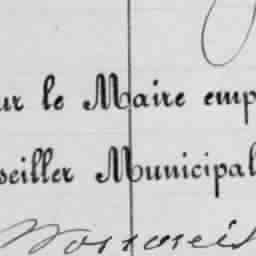 ur le Maire emp
seiller Municipal